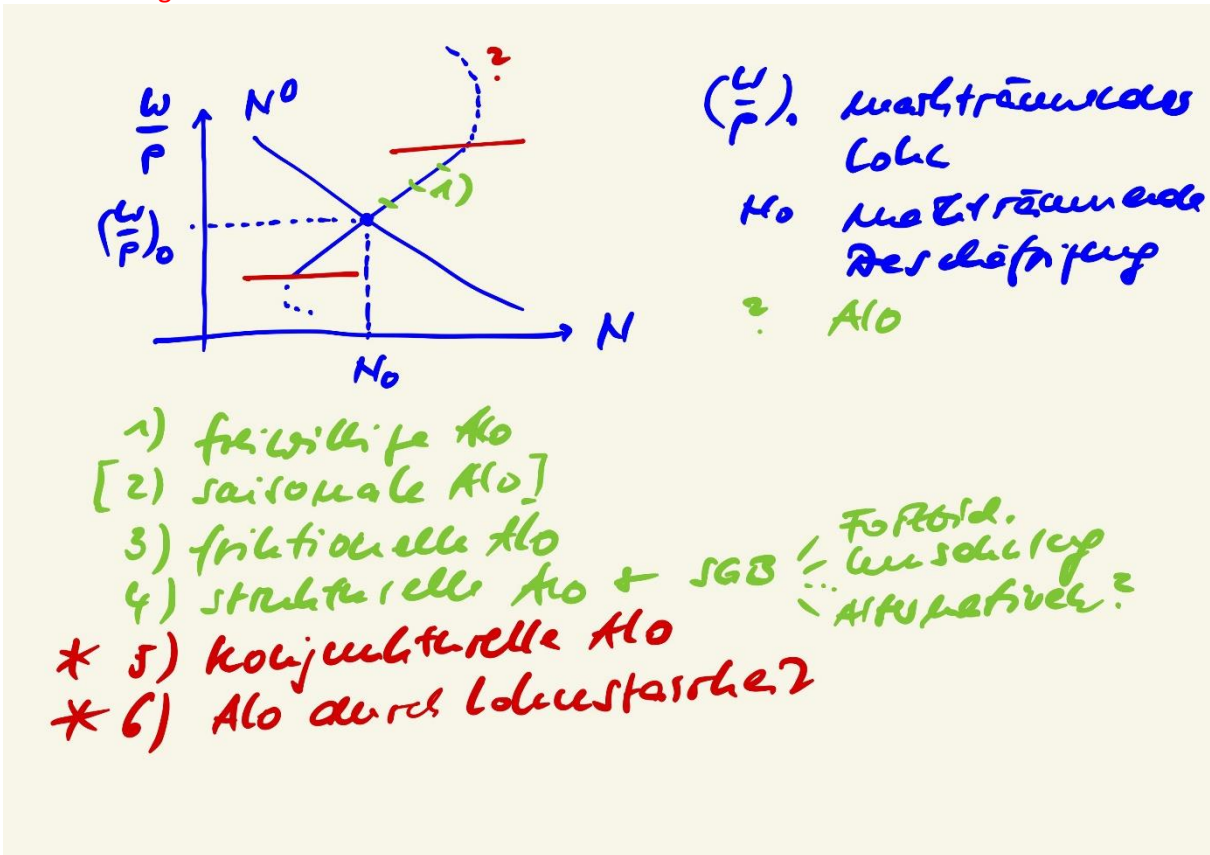 W/P
N^D
?
1)
(W/P)₀
N
N₀
(W/P)₀ markträumendes
Lohn
N₀ markträumende
Beschäftigung
? Alo
1) freiwillige Alo
[2) saisonale Alo]
3) friktionelle Alo
4) strukturelle Alo ← SGB
Fortbild.
Umschulung
...
Alternativen?
* 5) konjunkturelle Alo
* 6) Alo durch Lohnstarrheit